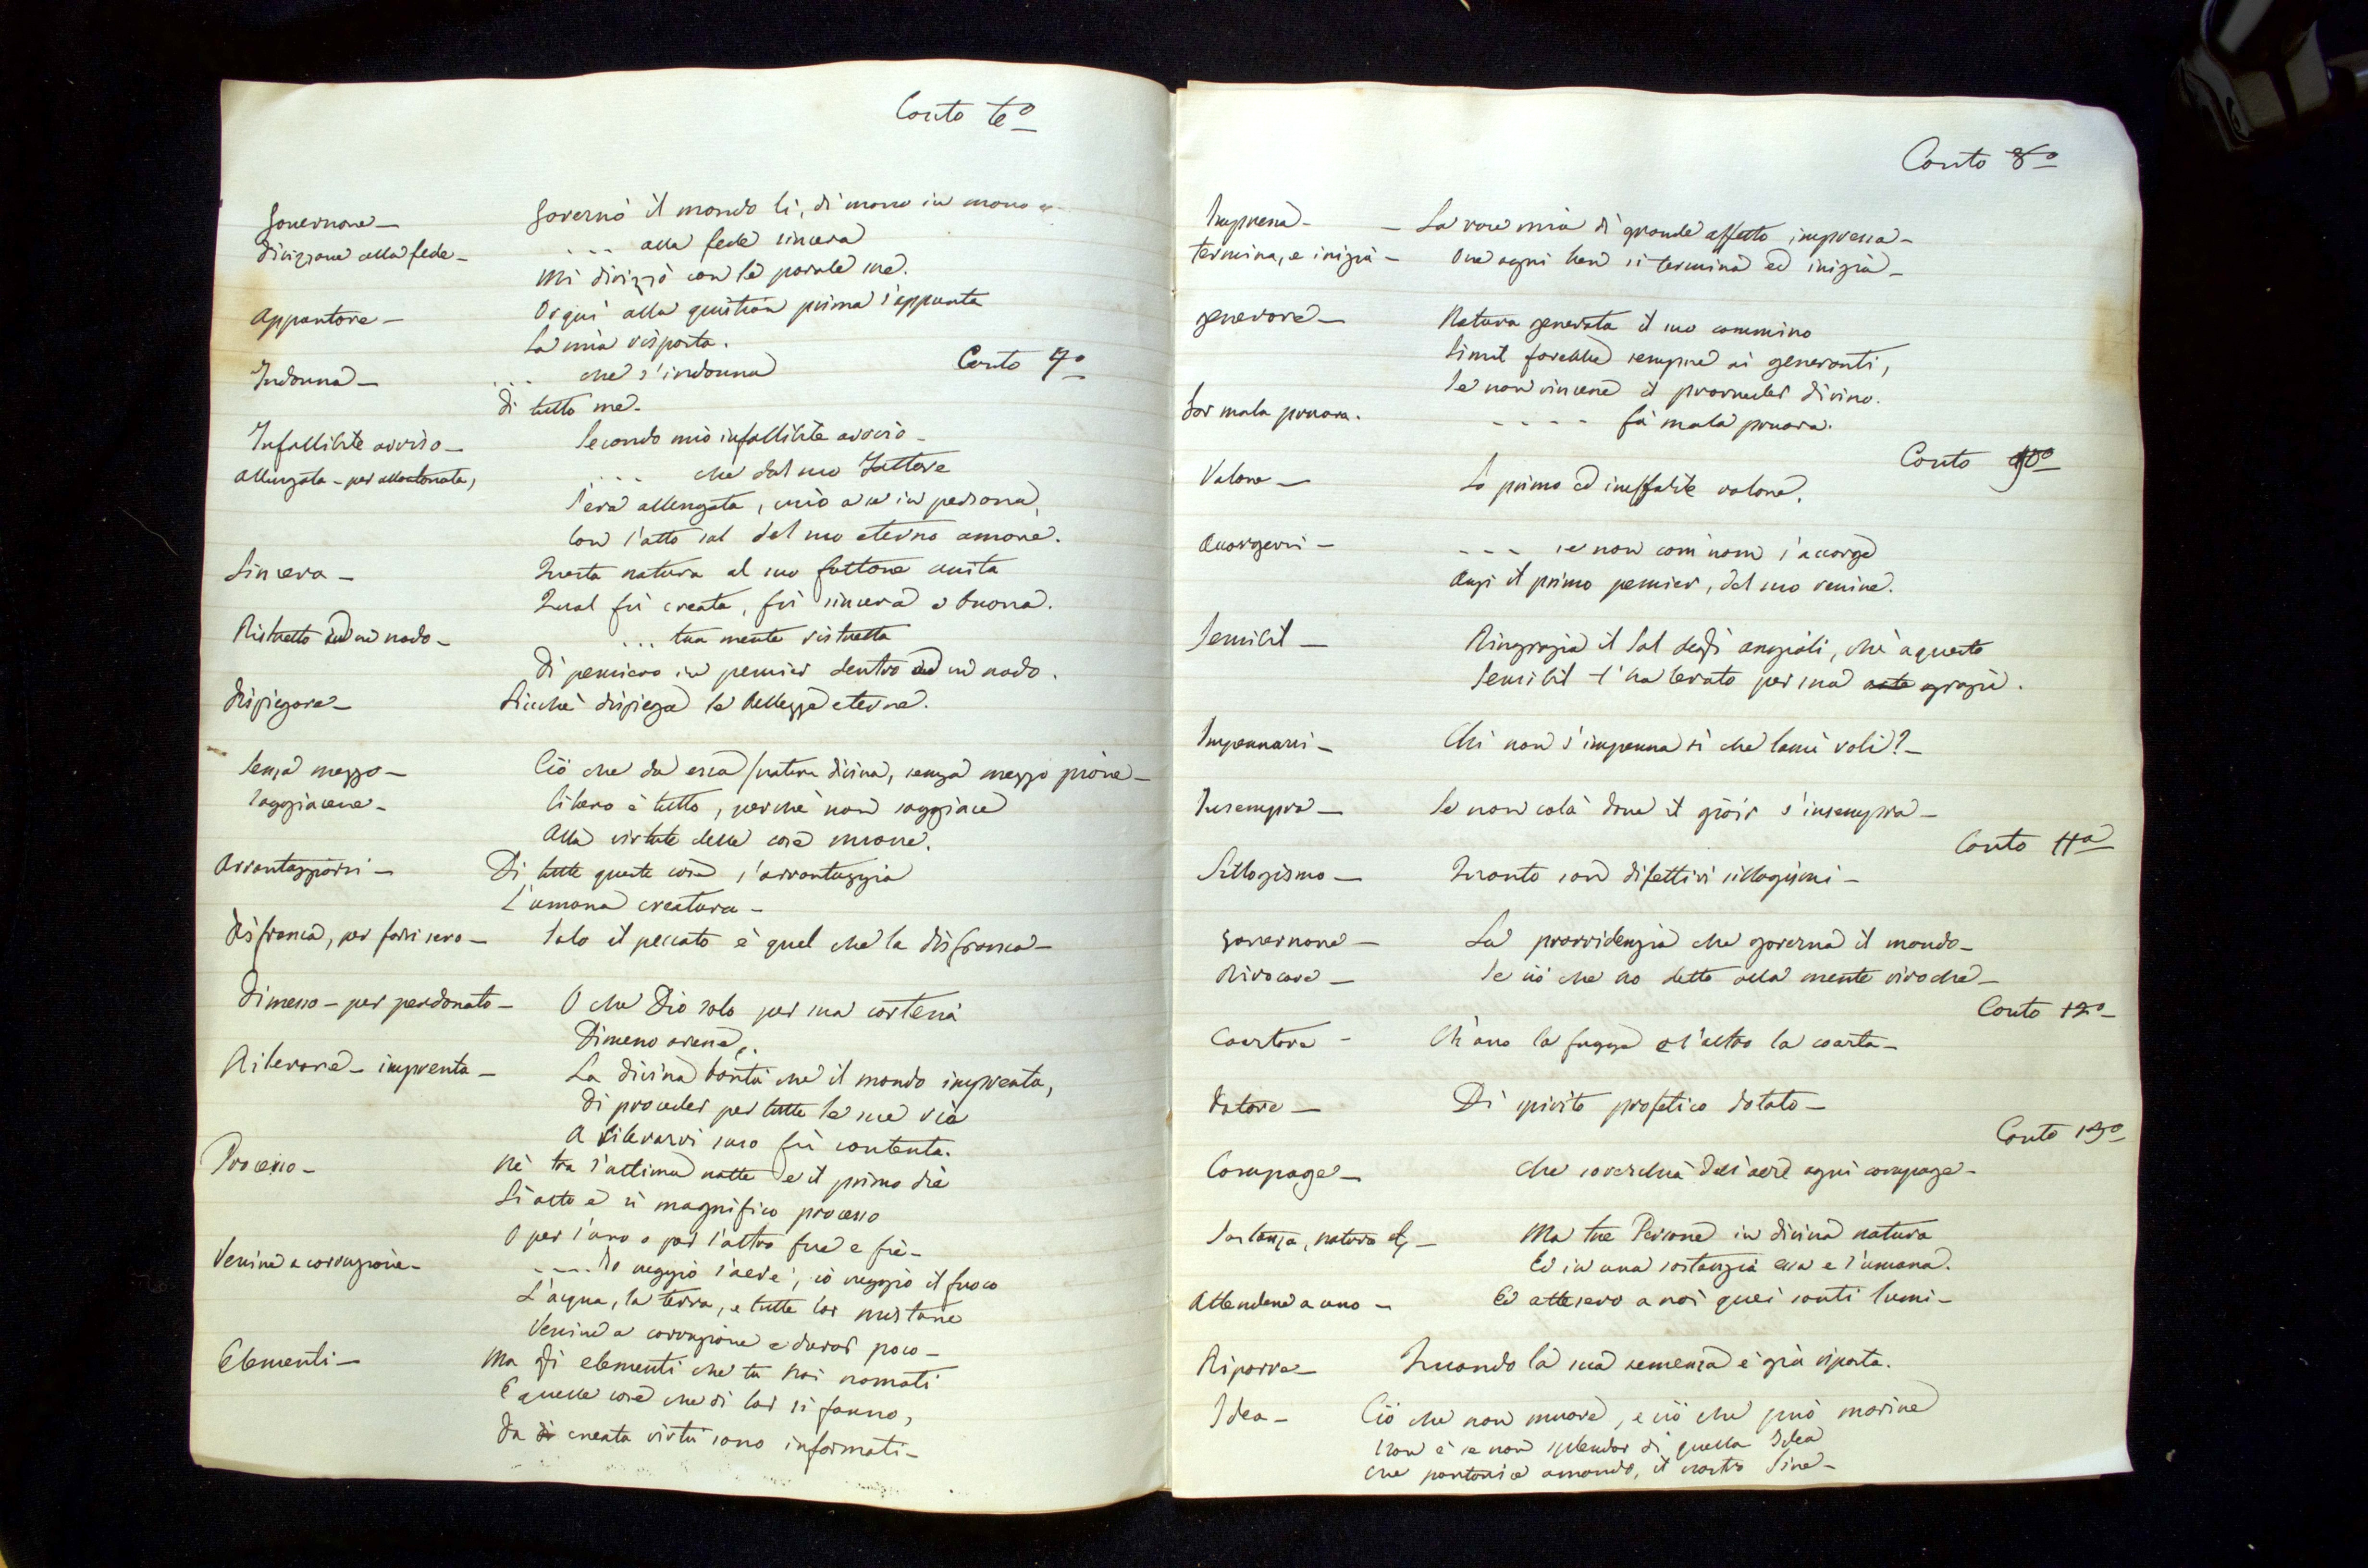 Canto 6º
Governare — Governò il mondo lì, di mano in mano
Dirizzare alla fede — . . . alla fede sincera
Mi dirizzò con le parole sue.
Appuntare — Or qui alla quistion prima s'appunta
La mia risposta.
Canto 7º
Indonna — . . . che s'indonna
Di tutto me.
Infallibile avviso — Secondo mio infallibile avviso —
Allungata — per allontanata, . . . . che dal suo Fattore
S'era allungata, unio a se in persona,
Con l'atto sol del suo eterno amore.
Sincera — Questa natura al suo fattore unita
Qual fù creata, fù sincera e buona.
Ristretto in un nodo — . . . tua mente ristretta
Di pensiero in pensier dentro ad un nodo.
Dispiegare — Sicchè dispiega le bellezze eterne.
Senza mezzo — Ciò che da essa (natura divina, senza mezzo piove —
Soggiacere — Libero è tutto, perchè non soggiace
Alla virtute delle cose nuove.
Avvantaggiarsi — Di tutte queste cose s'avvantaggia
L'umana creatura —
Disfranca, per farsi servo — Solo il peccato è quel che la disfranca —
Dimesso — per perdonato — O che Dio solo per sua cortesia
Dimesso avesse,.
Rilevare — imprenta — La divina bontà che il mondo imprenta,
Di proceder per tutte le sue vie
A rilevarvi suso fù contenta.
Processo — Nè tra l'ultima notte e il primo die
Sì alto e sì magnifico processo
O per l'uno o per l'altro fue e fie —
Venire a corruzione — . . . . Io veggio l'aere, io veggio il fuoco
L'acqua, la terra, e tutte lor misture
Venire a corruzione e durar poco —
Elementi — Ma gli elementi che tu hai nomati
E quelle cose che di lor si fanno,
Da creata virtù sono informati —
Canto 8º
Impressa — — La voce mia di grande affetto impressa —
Termina, e inizia — Ove ogni ben si termina ed inizia —
Generare — Natura generata il suo cammino
Simil farebbe sempre ai generanti,
Se non vincesse il provveder divino.
Far mala pruova. — . . . . fà mala pruova.
Canto 10º
Valore — Lo primo ed ineffabile valore.
Accorgersi — . . . se non com'uom s'accorge
Anzi il primo pensier, del suo venire.
Sensibil — Ringrazia il Sol degli angioli, che a questo
Sensibil t'ha levato per sua grazia.
Impennarsi — Chi non s'impenna sì che lassù voli? —
Insempra — Se non colà dove il gioir s'insempra —
Canto 11º
Sillogismo — Quanto son difettivi sillogismi —
Governare — La provvidenzia che governa il mondo —
Rivocare — Se ciò che ho detto alla mente rivoche —
Canto 12º
Coartare — Ch'uno la fugge e l'altro la coarta —
Dotare — Di spirito profetico dotato —
Canto 13º
Compage — Che soverchia dell'aere ogni compage —
Sostanza, natura — Ma tre Persone in divina natura
Ed in una sostanzia essa e l'umana.
Attendere a uno — Ed attesero a noi quei santi lumi —
Riporre — Quando la sua semenza è già riposta.
Idea — Ciò che non muore, e ciò che può morire
Non è se non splendor di quella Idea
Che partorisce amando, il nostro Sire —